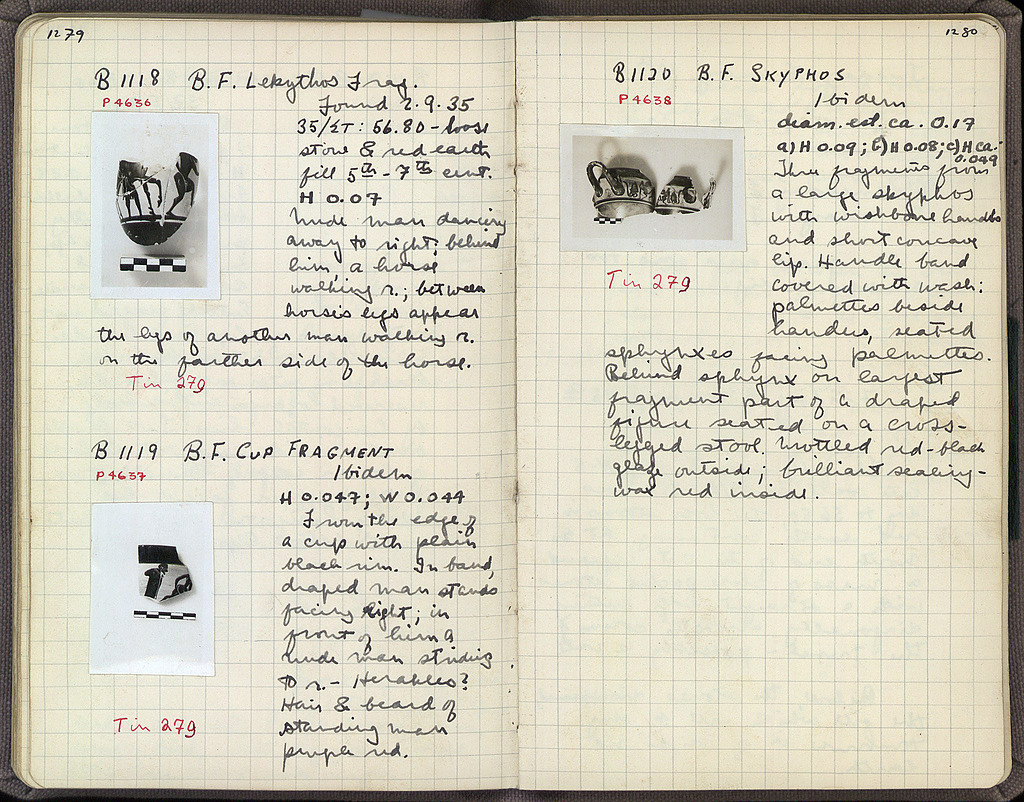 1279
B 1118 B.F. Lekythos Frag.
P 4636
Found 2.9.35
35/ΣΤ: 56.80 - loose
stone & red earth
fill 5th - 7th cent.
H 0.07
Nude man dancing
away to right; behind
him, a horse
walking r.; between
horse's legs appear
the legs of another man walking r.
on the farther side of the horse.
Tin 279
B 1119 B.F. CUP FRAGMENT
P 4637
Ibidem
H 0.047; W 0.044
From the edge of
a cup with plain
black rim. In band,
draped man stands
facing right; in
front of him a
nude man striding
to r. - Herakles?
Hair & beard of
standing man
purple red.
Tin 279
1280
B 1120 B.F. SKYPHOS
P 4638
Ibidem
diam. est. ca. 0.17
a) H 0.09; b) H 0.08; c) H ca. 0.049
Three fragments from
a large skyphos
with wishbone handles
and short concave
lip. Handle band
covered with wash:
palmettes beside
handles, seated
sphynxes facing palmettes.
Behind sphynx on largest
fragment part of a draped
figure seated on a cross-
legged stool. Mottled red-black
glaze outside; brilliant sealing-
wax red inside.
Tin 279